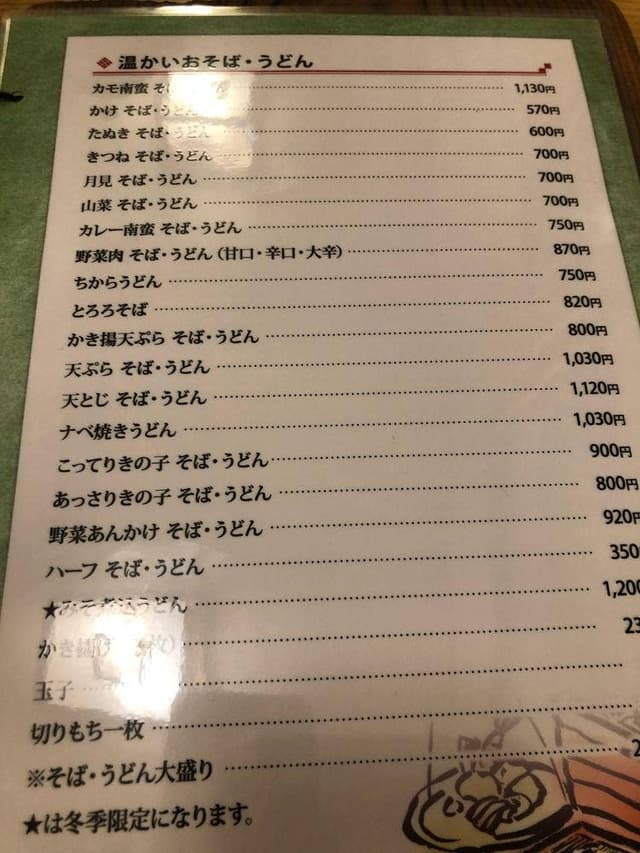 温かいおそば・うどん
カモ南蛮 そ 1,130円
かけ そば・うどん 570円
たぬき そば・うどん 600円
きつね そば・うどん 700円
月見 そば・うどん 700円
山菜 そば・うどん 700円
カレー南蛮 そば・うどん 750円
野菜肉 そば・うどん (甘口・辛口・大辛) 870円
ちからうどん 750円
とろろそば 820円
かき揚天ぷら そば・うどん 800円
天ぷら そば・うどん 1,030円
天とじ そば・うどん 1,120円
ナベ焼きうどん 1,030円
こってりきの子 そば・うどん 900円
あっさりきの子 そば・うどん 800円
野菜あんかけ そば・うどん 920円
ハーフ そば・うどん 350
★みそ煮込うどん 1,200
かき揚げ 23
玉子
切りもち一枚
※そば・うどん大盛り 2
★は冬季限定になります。